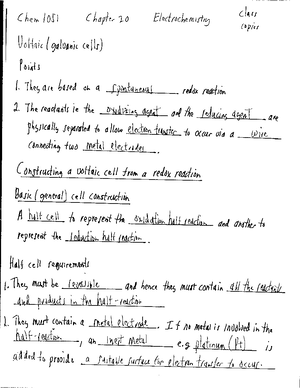 Chem 1051 Chapter 20 Electrochemistry class
copies
Voltaic (galvanic cells)
Points
1. They are based on a spontaneous redox reaction
2. The reactants in the oxidizing agent and the reducing agent are
physically separated to allow electron transfer to occur via a wire
connecting two metal electrodes.
Constructing a voltaic cell from a redox reaction
Basic (general) cell construction
A half cell to represent the oxidation half reaction and another to
represent the reduction half reaction.
Half cell requirements
1. They must be reversible and hence they must contain all the reactants
and products in the half-reaction
2. They must contain a metal electrode. If no metal is involved in the
half-reaction, an inert metal e.g. platinum (Pt) is
added to provide a suitable surface for electron transfer to occur.